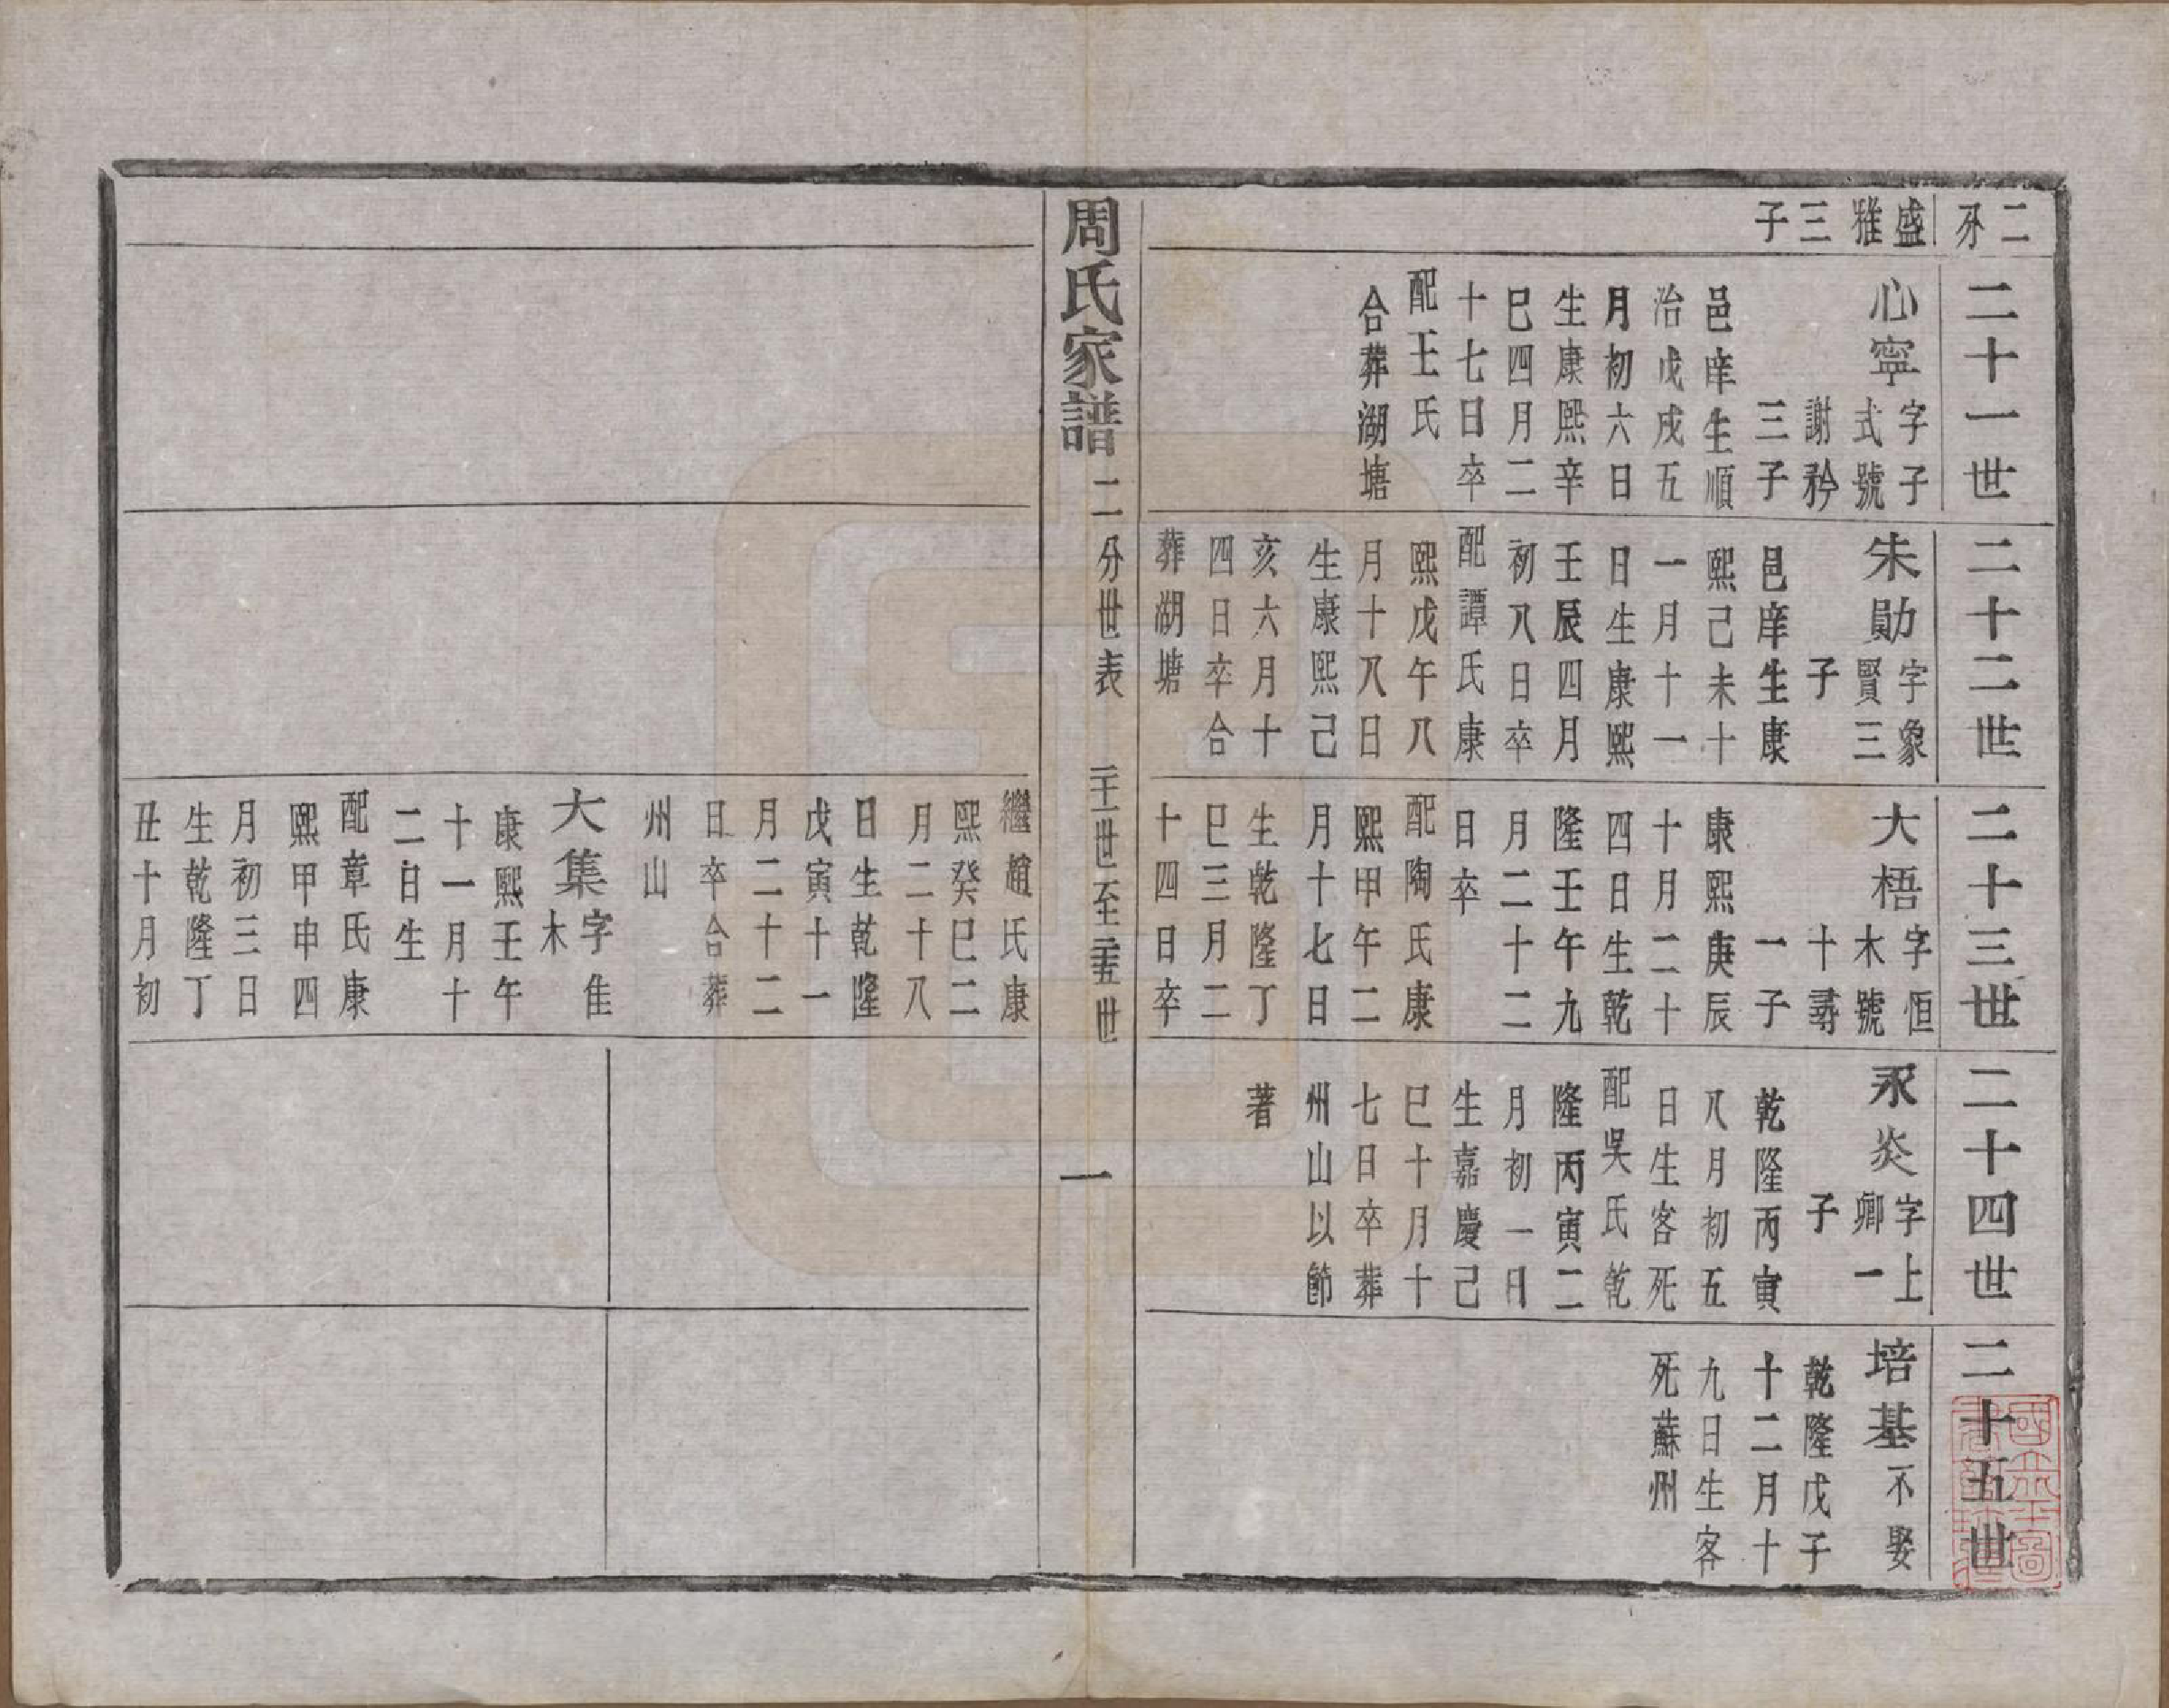 二
盛
雅
三
子
二十一世
心寧字子
式號
謝矜
三子
邑庠生順
治戊戌五
月初六日
生康熙辛
巳四月二
十七日卒
配王氏
合葬湖塘
二十二世
朱勛字象
賢三
子
邑庠生康
熙己未十
一月十一
日生康熙
壬辰四月
初八日卒
配譚氏康
熙戊午八
月十八日
生康熙己
亥六月十
四日卒合
葬湖塘
二十三世
大梧字恒
木號
十尋
一子
康熙庚辰
十月二十
四日生乾
隆壬午九
月二十二
日卒
配陶氏康
熙甲午二
月十七日
生乾隆丁
巳三月二
十四日卒
二十四世
永炎字上
卿一
子
乾隆丙寅
八月初五
日生客死
配吳氏乾
隆丙寅二
月初一日
生嘉慶己
巳十月十
七日卒葬
州山以節
著
二十五世
培基不娶
乾隆戊子
十二月十
九日生客
死蘇州
周氏家譜 二 分世表 二十一世至二十五世 一
繼趙氏康
熙癸巳二
月二十八
日生乾隆
戊寅十一
月二十二
日卒合葬
州山
大集字隹
木
康熙壬午
十一月十
二日生
配章氏康
熙甲申四
月初三日
生乾隆丁
丑十月初